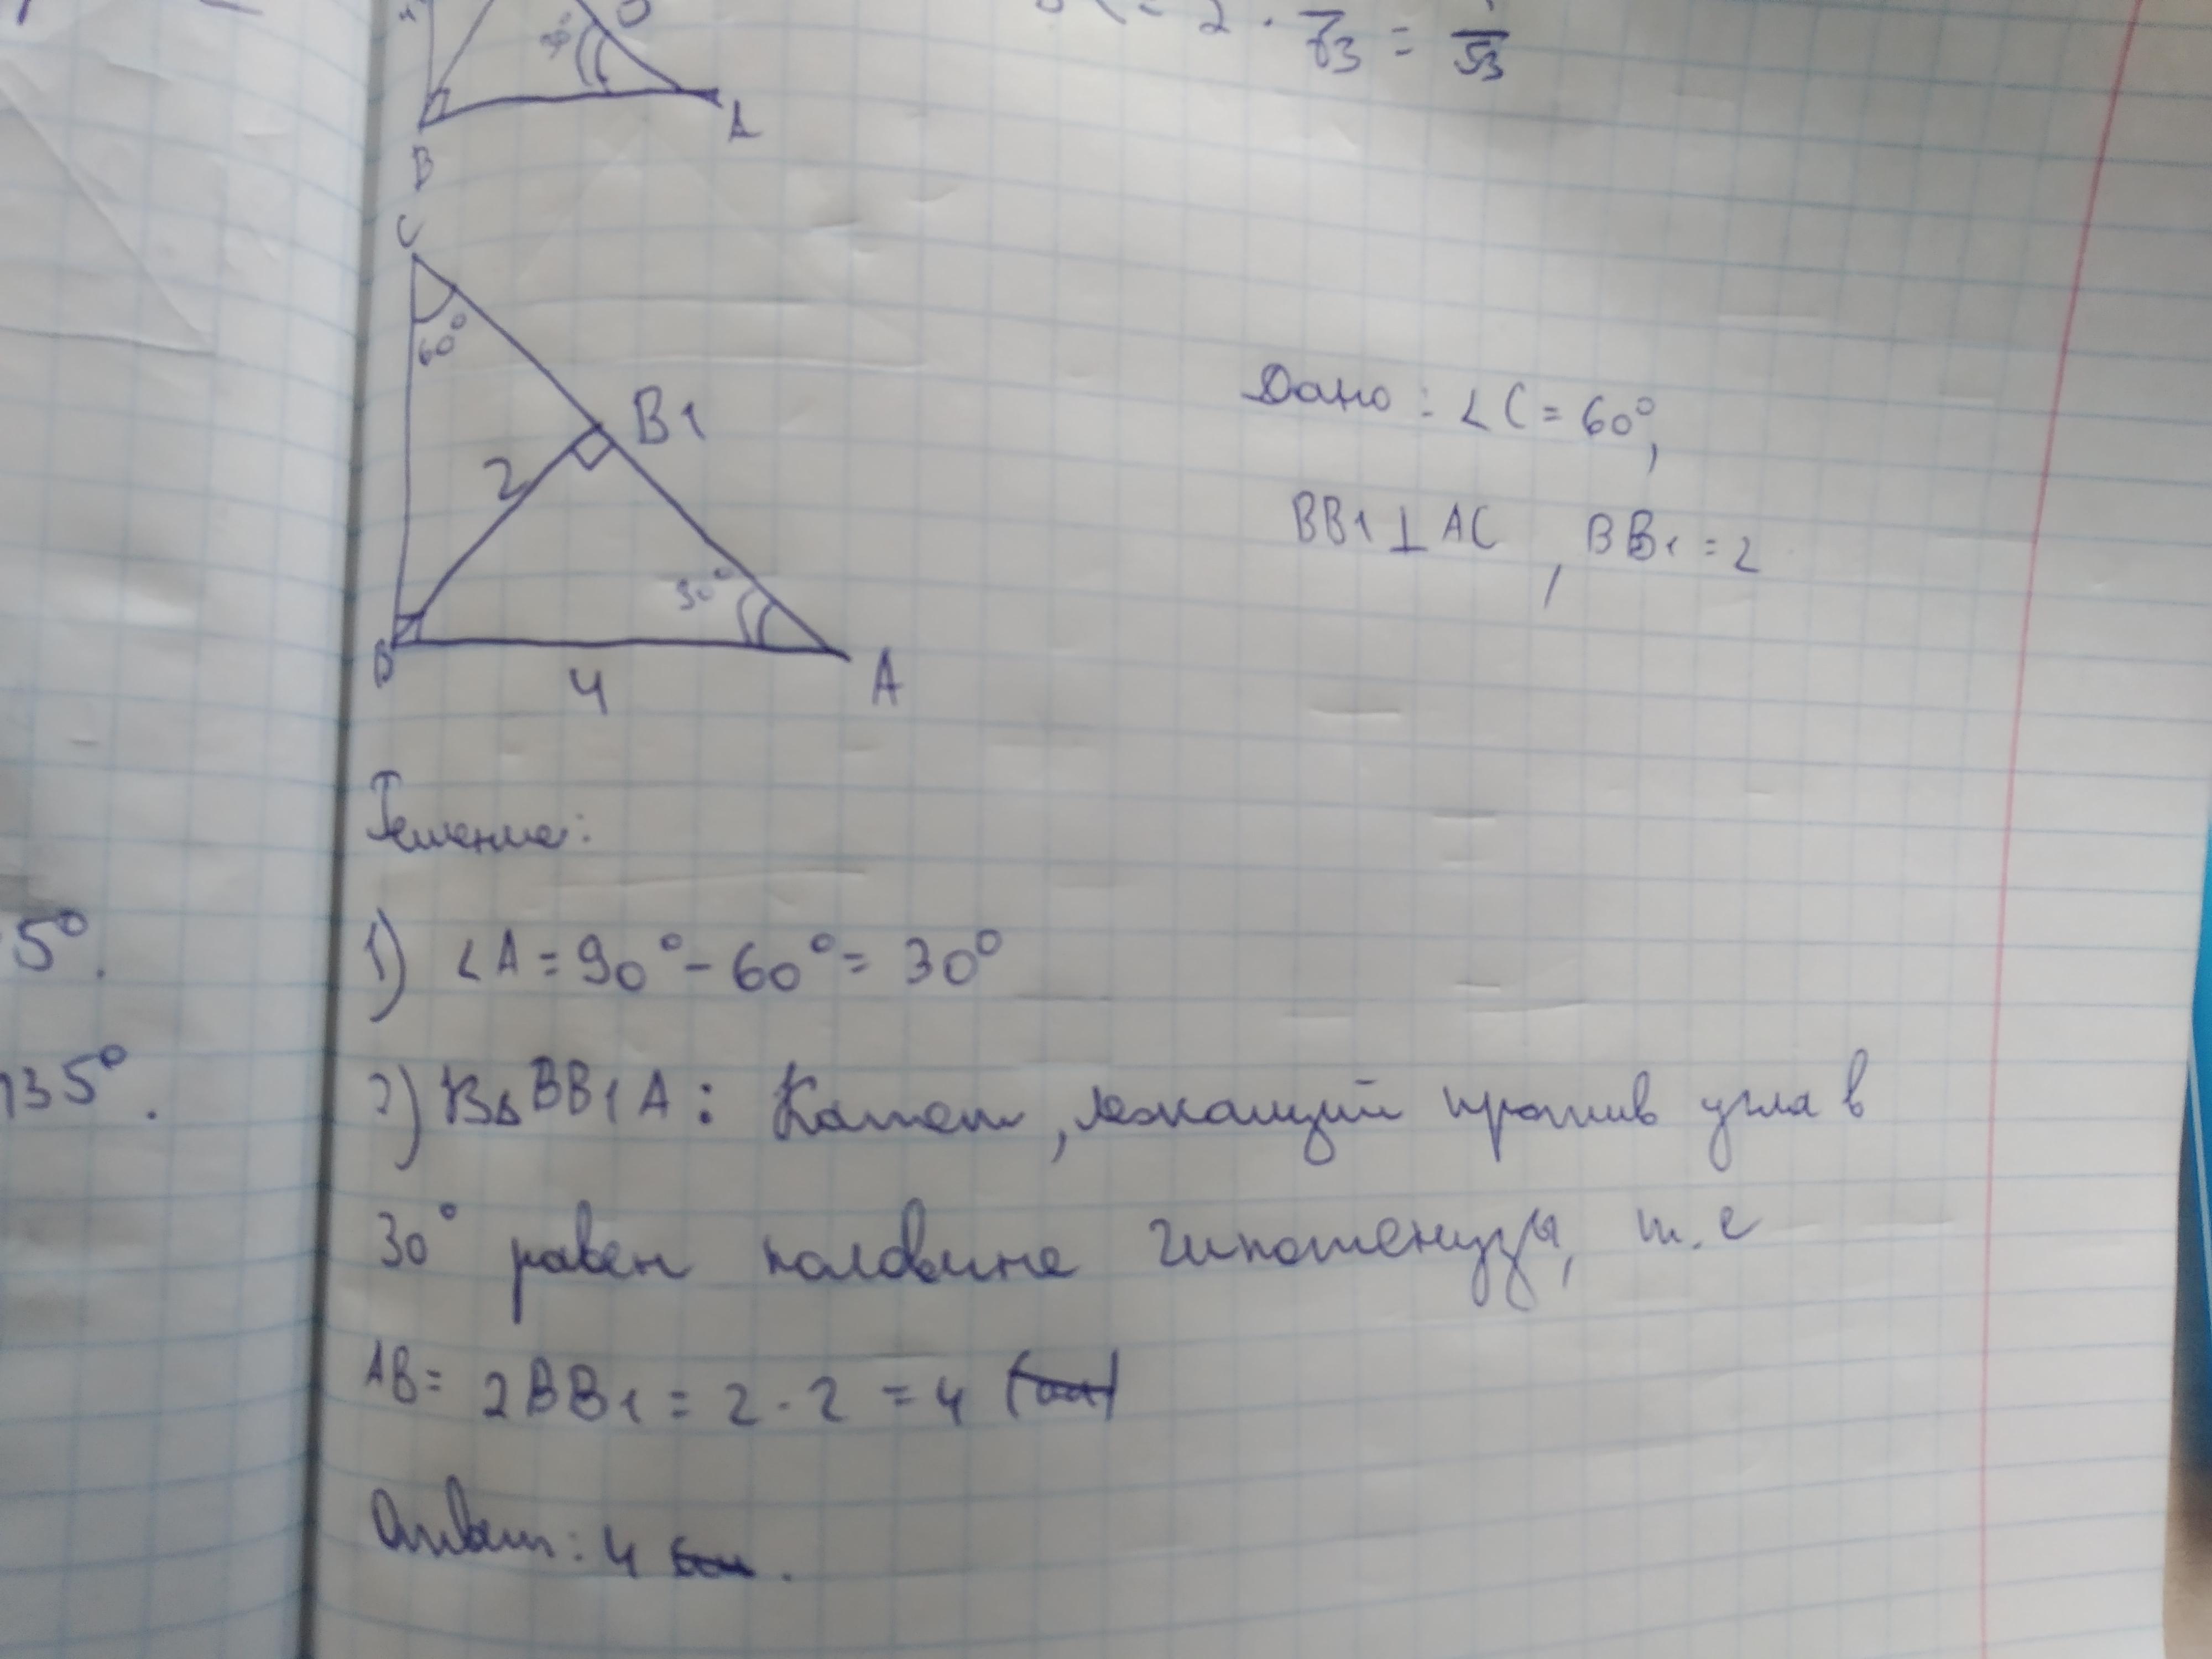 = 2 · /√3 = /√3
A
B
C
60°
B1
2
30°
B
4
A
Дано : ∠C = 60°,
BB1 ⊥ AC , BB1 = 2
Решение:
5°.
1) ∠A = 90° - 60° = 30°
135°.
2) В△BB1A: Катет, лежащий против угла в
30° равен половине гипотенузы, т.е
AB = 2BB1 = 2 · 2 = 4
Ответ: 4 .